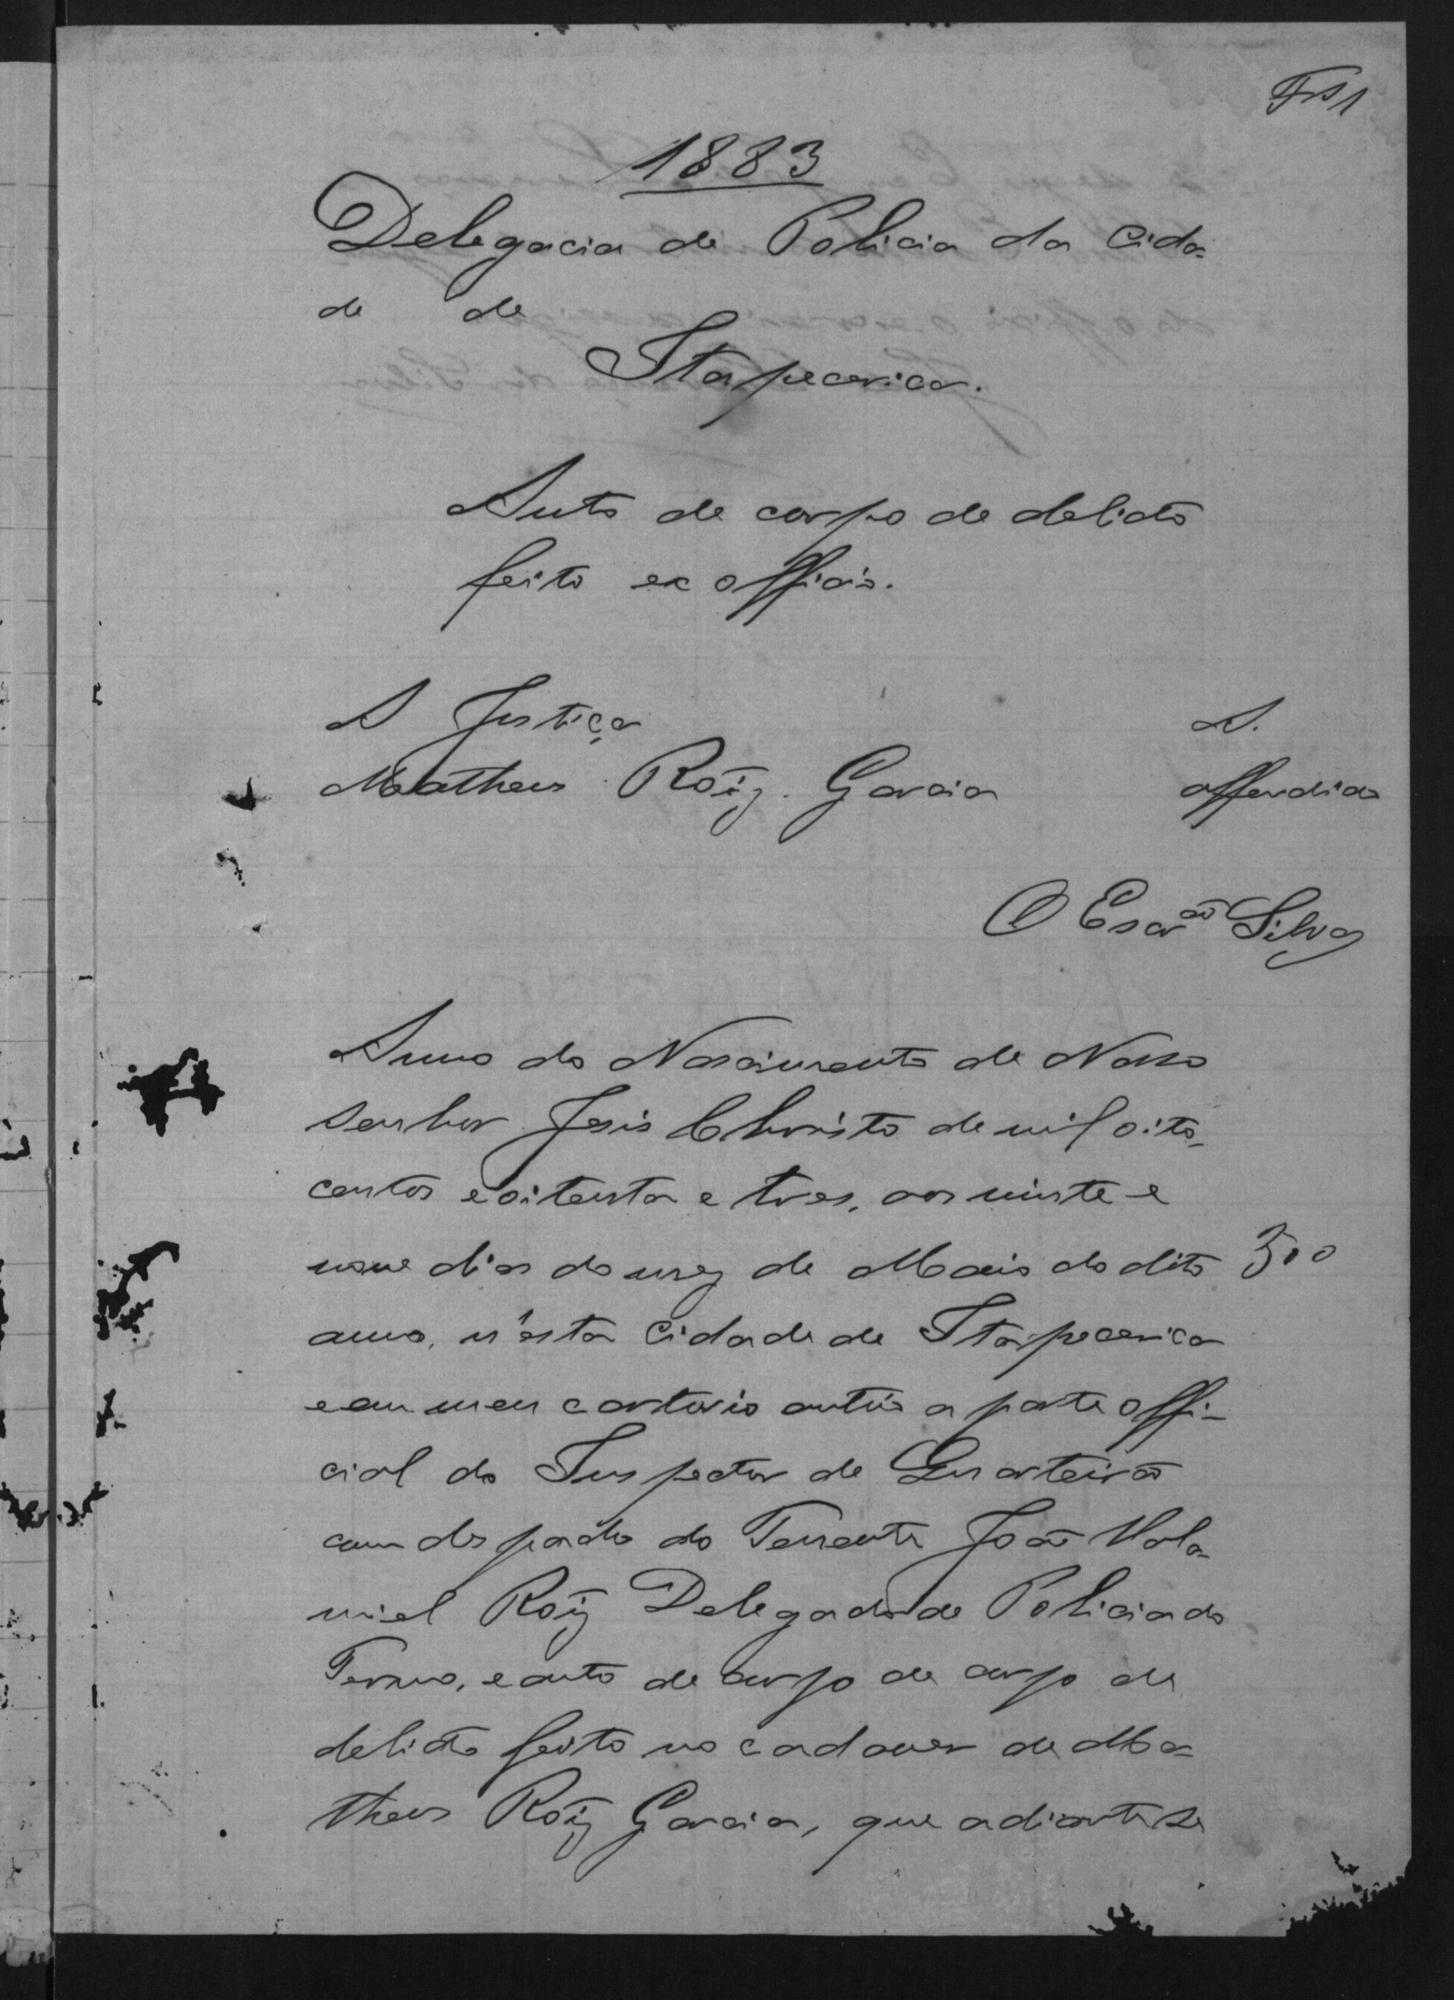 Fls 1
1883
Delegacia de Policia da Cida-
de de
Itapecerica.
Auto de corpo de delicto
feito ex officio.
A Justiça A.
Matheus Roĩz. Garcia offendido
O Escr.ão Silva
Anno do Nascimento de Nosso
Senhor Jesis Christo de mil oito-
centos e oitenta e tres, aos vinte e
nove dias do mez de Maio do dito 300
anno, n'esta Cidade de Itapecerica
e em meu cartorio autúo a parte offi-
cial do Inspector de Quarteirão
com despacho do Tenente João
Roĩz Delegado de Policia do
Termo, e auto de corpo de corpo de
delicto feito no cadaver de Ma-
theus Roĩz Garcia, que adiante se